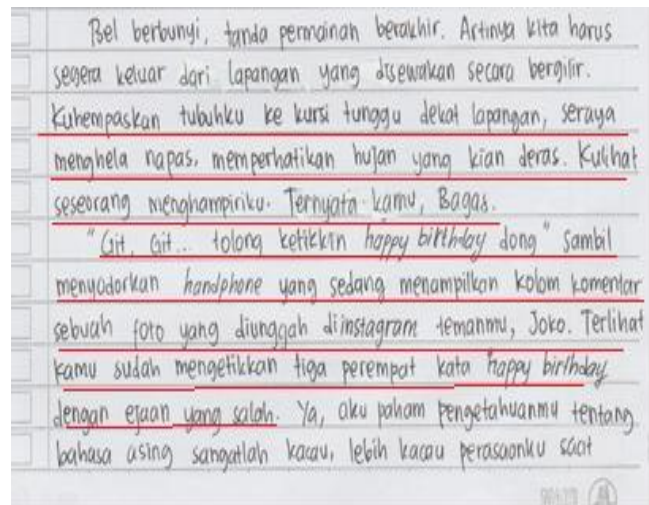 Bel berbunyi, tanda permainan berakhir. Artinya kita harus
segera keluar dari lapangan yang disewakan secara bergilir.
Kuhempaskan tubuhku ke kursi tunggu dekat lapangan, seraya
menghela napas, memperhatikan hujan yang kian deras. Kulihat
seseorang menghampiriku. Ternyata kamu, Bagas.
"Git, Git... tolong ketikkin happy birthday dong" sambil
menyodorkan handphone yang sedang menampilkan kolom komentar
sebuah foto yang diunggah diinstagram temanmu, Joko. Terlihat
kamu sudah mengetikkan tiga perempat kata happy birthday
dengan ejaan yang salah. Ya, aku paham pengetahuanmu tentang
bahasa asing sangatlah kacau, lebih kacau perasaanku saat